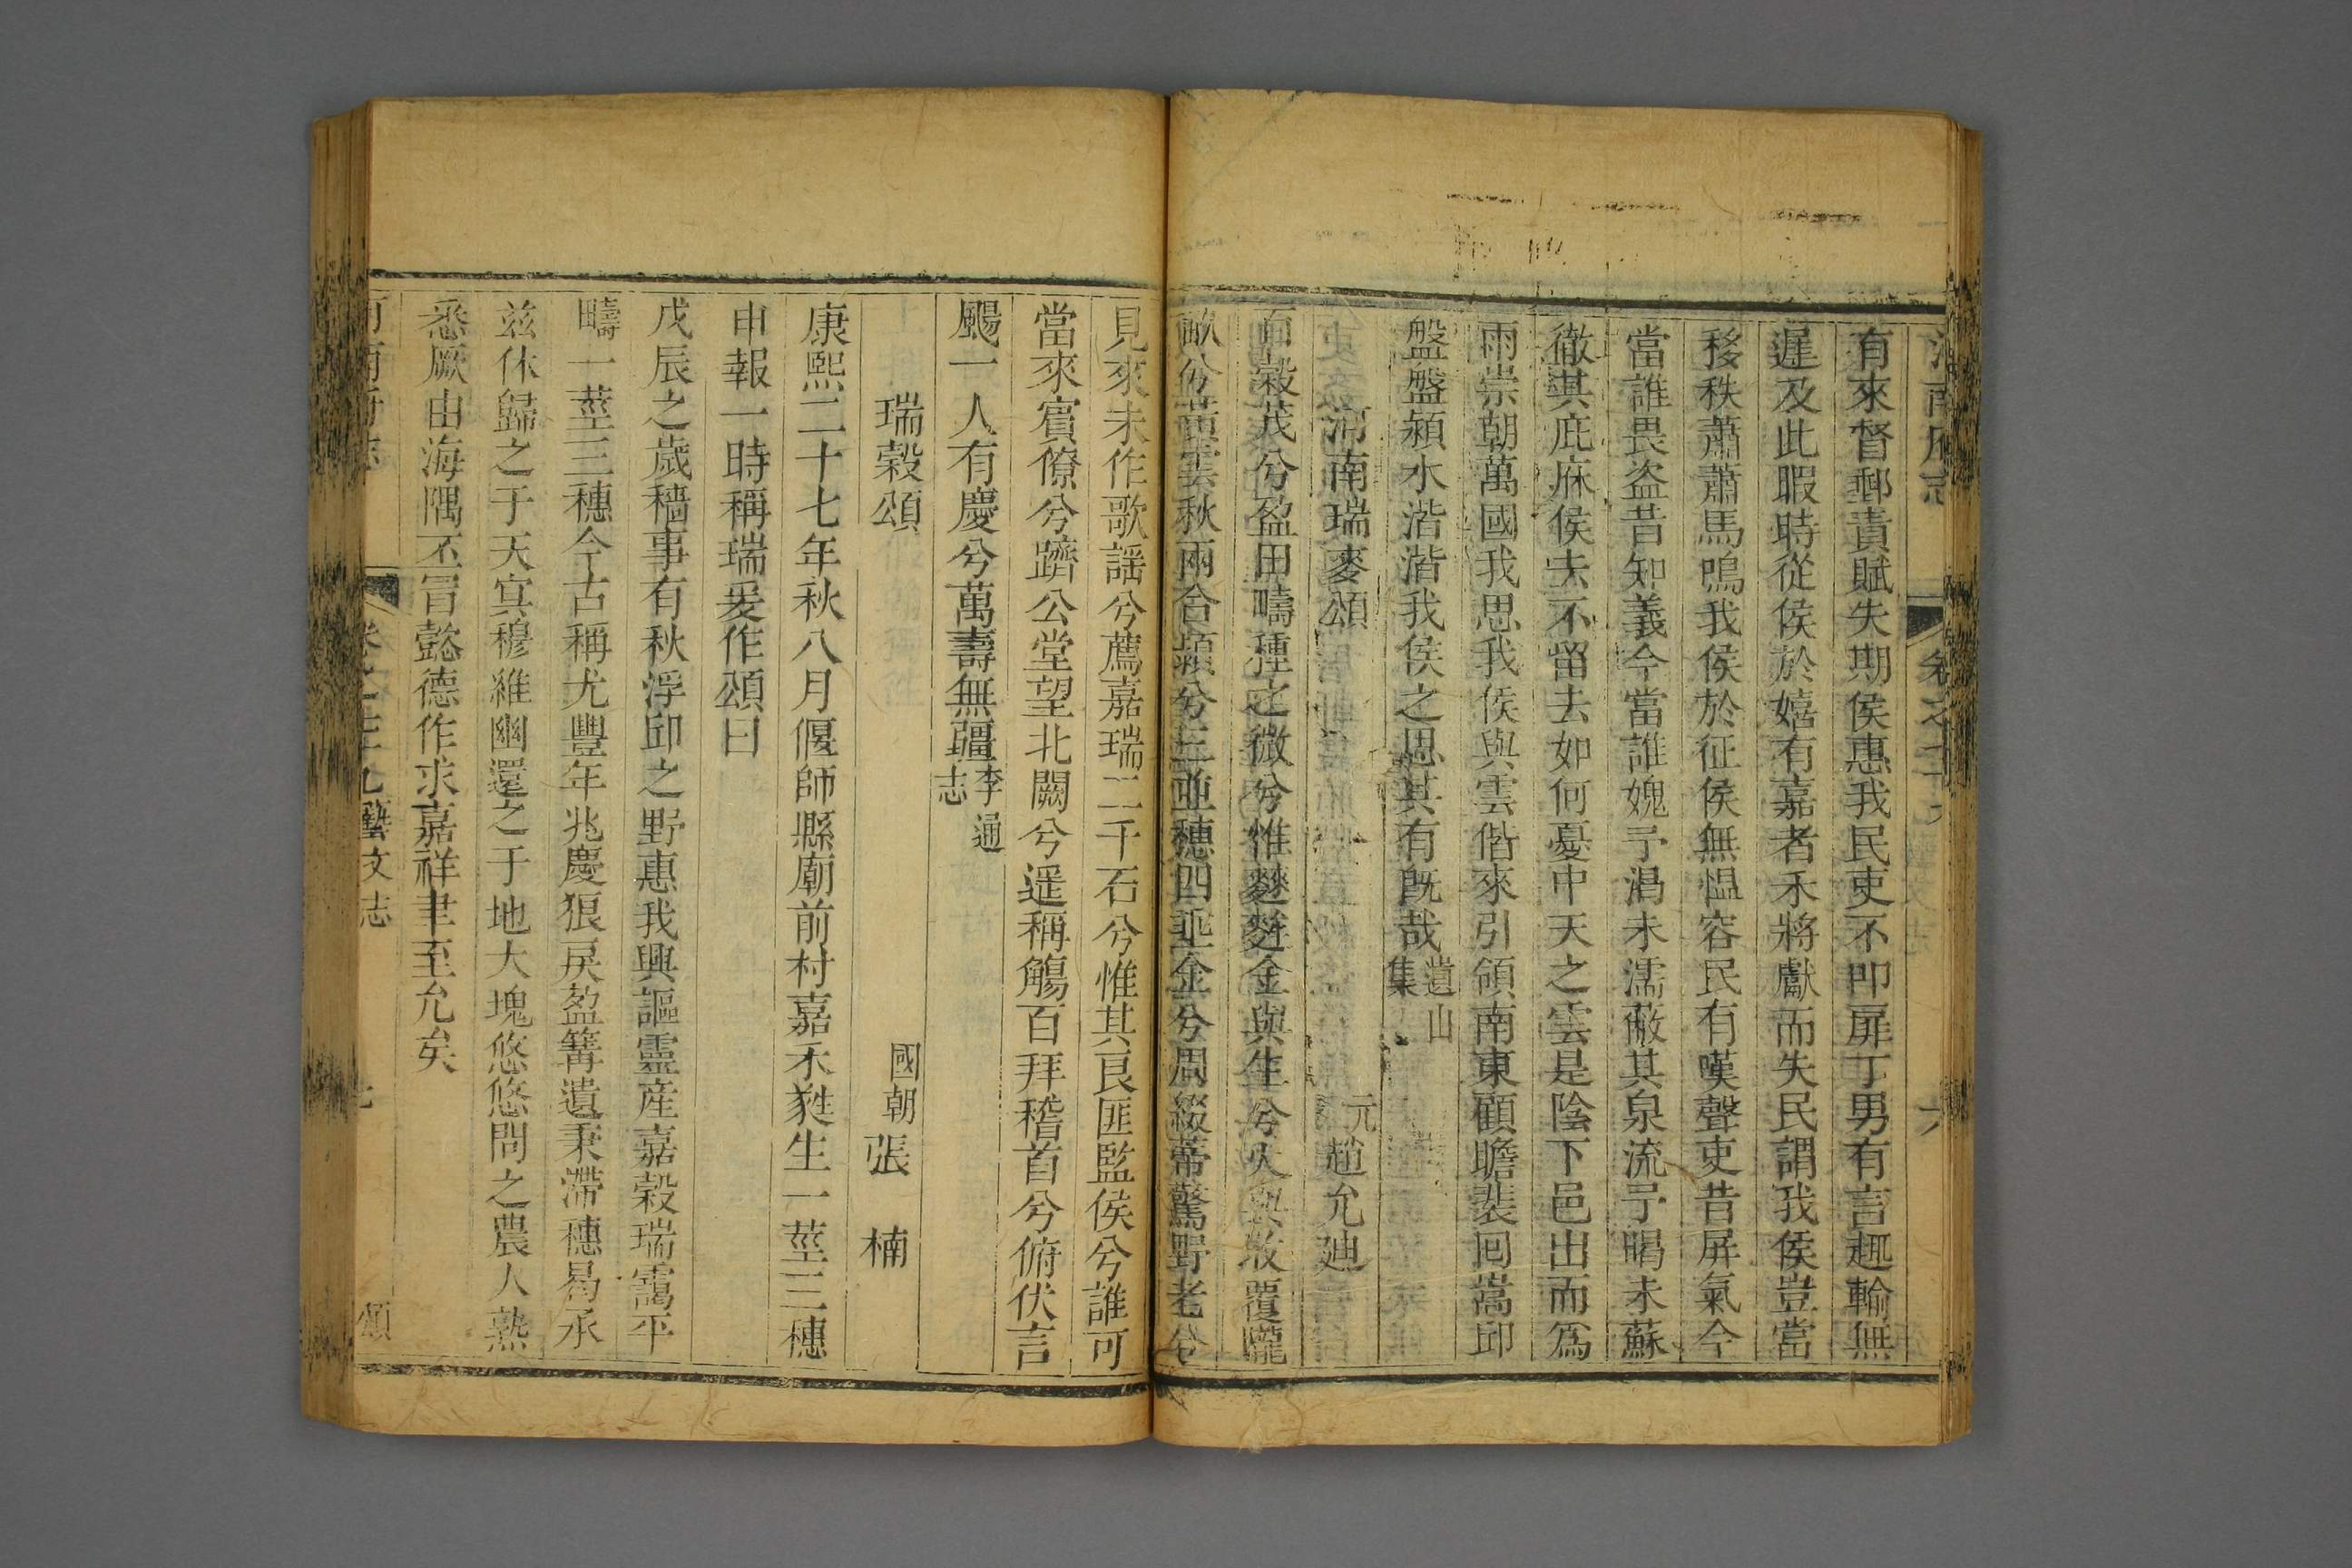 有來督郵責賦失期侯惠我民吏不卽扉丁男有言趣輸無
遲及此暇時從侯於嬉有嘉者禾將獻而失民謂我侯豈當
移秩蕭蕭馬鳴我侯於征侯無慍容民有嘆聲吏昔屏氣今
當誰畏盜昔知義今當誰媿予渴未濡蔽其泉流予暍未蘇
徹其庇庥侯去不留去如何憂中天之雲是陰下邑出而爲
雨崇朝萬國我思我侯與雲偕來引領南東顧瞻裴回嵩邱
盤盤潁水湝湝我侯之思其有旣哉遺山集
河南瑞麥頌 元趙允迪
百穀茂兮盈田疇種之微兮惟麰麰金與生兮火與收覆隴
畝兮黃雲秋兩合穎兮三並穗四垂金兮周綴蒂驚野老兮
見來未作歌謡兮薦嘉瑞二千石兮惟其良匪監侯兮誰可
當來賓僚兮躋公堂望北闕兮遥稱觴百拜稽首兮俯伏言
颺一人有慶兮萬壽無疆李通志
瑞穀頌 國朝張 楠
康熙二十七年秋八月偃師縣廟前村嘉禾甤生一莖三穗
申報一時稱瑞爰作頌曰
戊辰之歲穡事有秋浮邱之野惠我興謳靈産嘉穀瑞靄平
疇一莖三穗今古稱尤豐年兆慶狼戾盈篝遺秉滯穗曷承
兹休歸之于天寘穆維幽還之于地大塊悠悠問之農人熟
悉厥由海隅丕冒懿德作求嘉祥聿至允矣
河南府志 卷之 九藝文志 頌 七